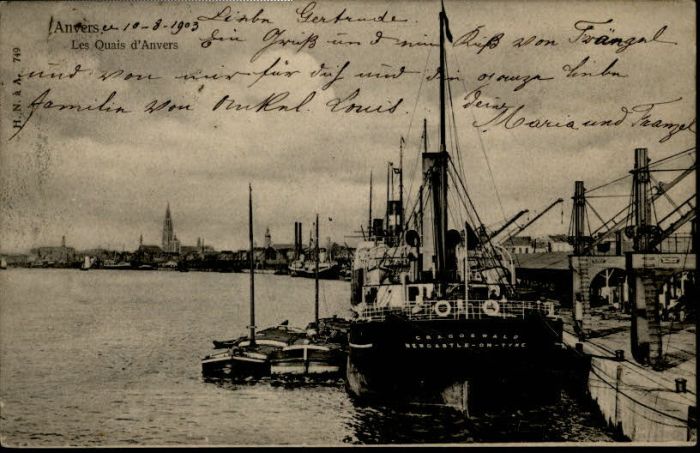 Anvers 10-8-1903 Liebe Gertrude.
Les Quais d'Anvers
Ein Gruß und ein Kuß von Fränzel
und von mir für dich und die ganze liebe
familie von Onkel Louis. deine
Maria und Franzel
H. N. & A. 749
CRAGOSWALD
NEWCASTLE-ON-TYNE